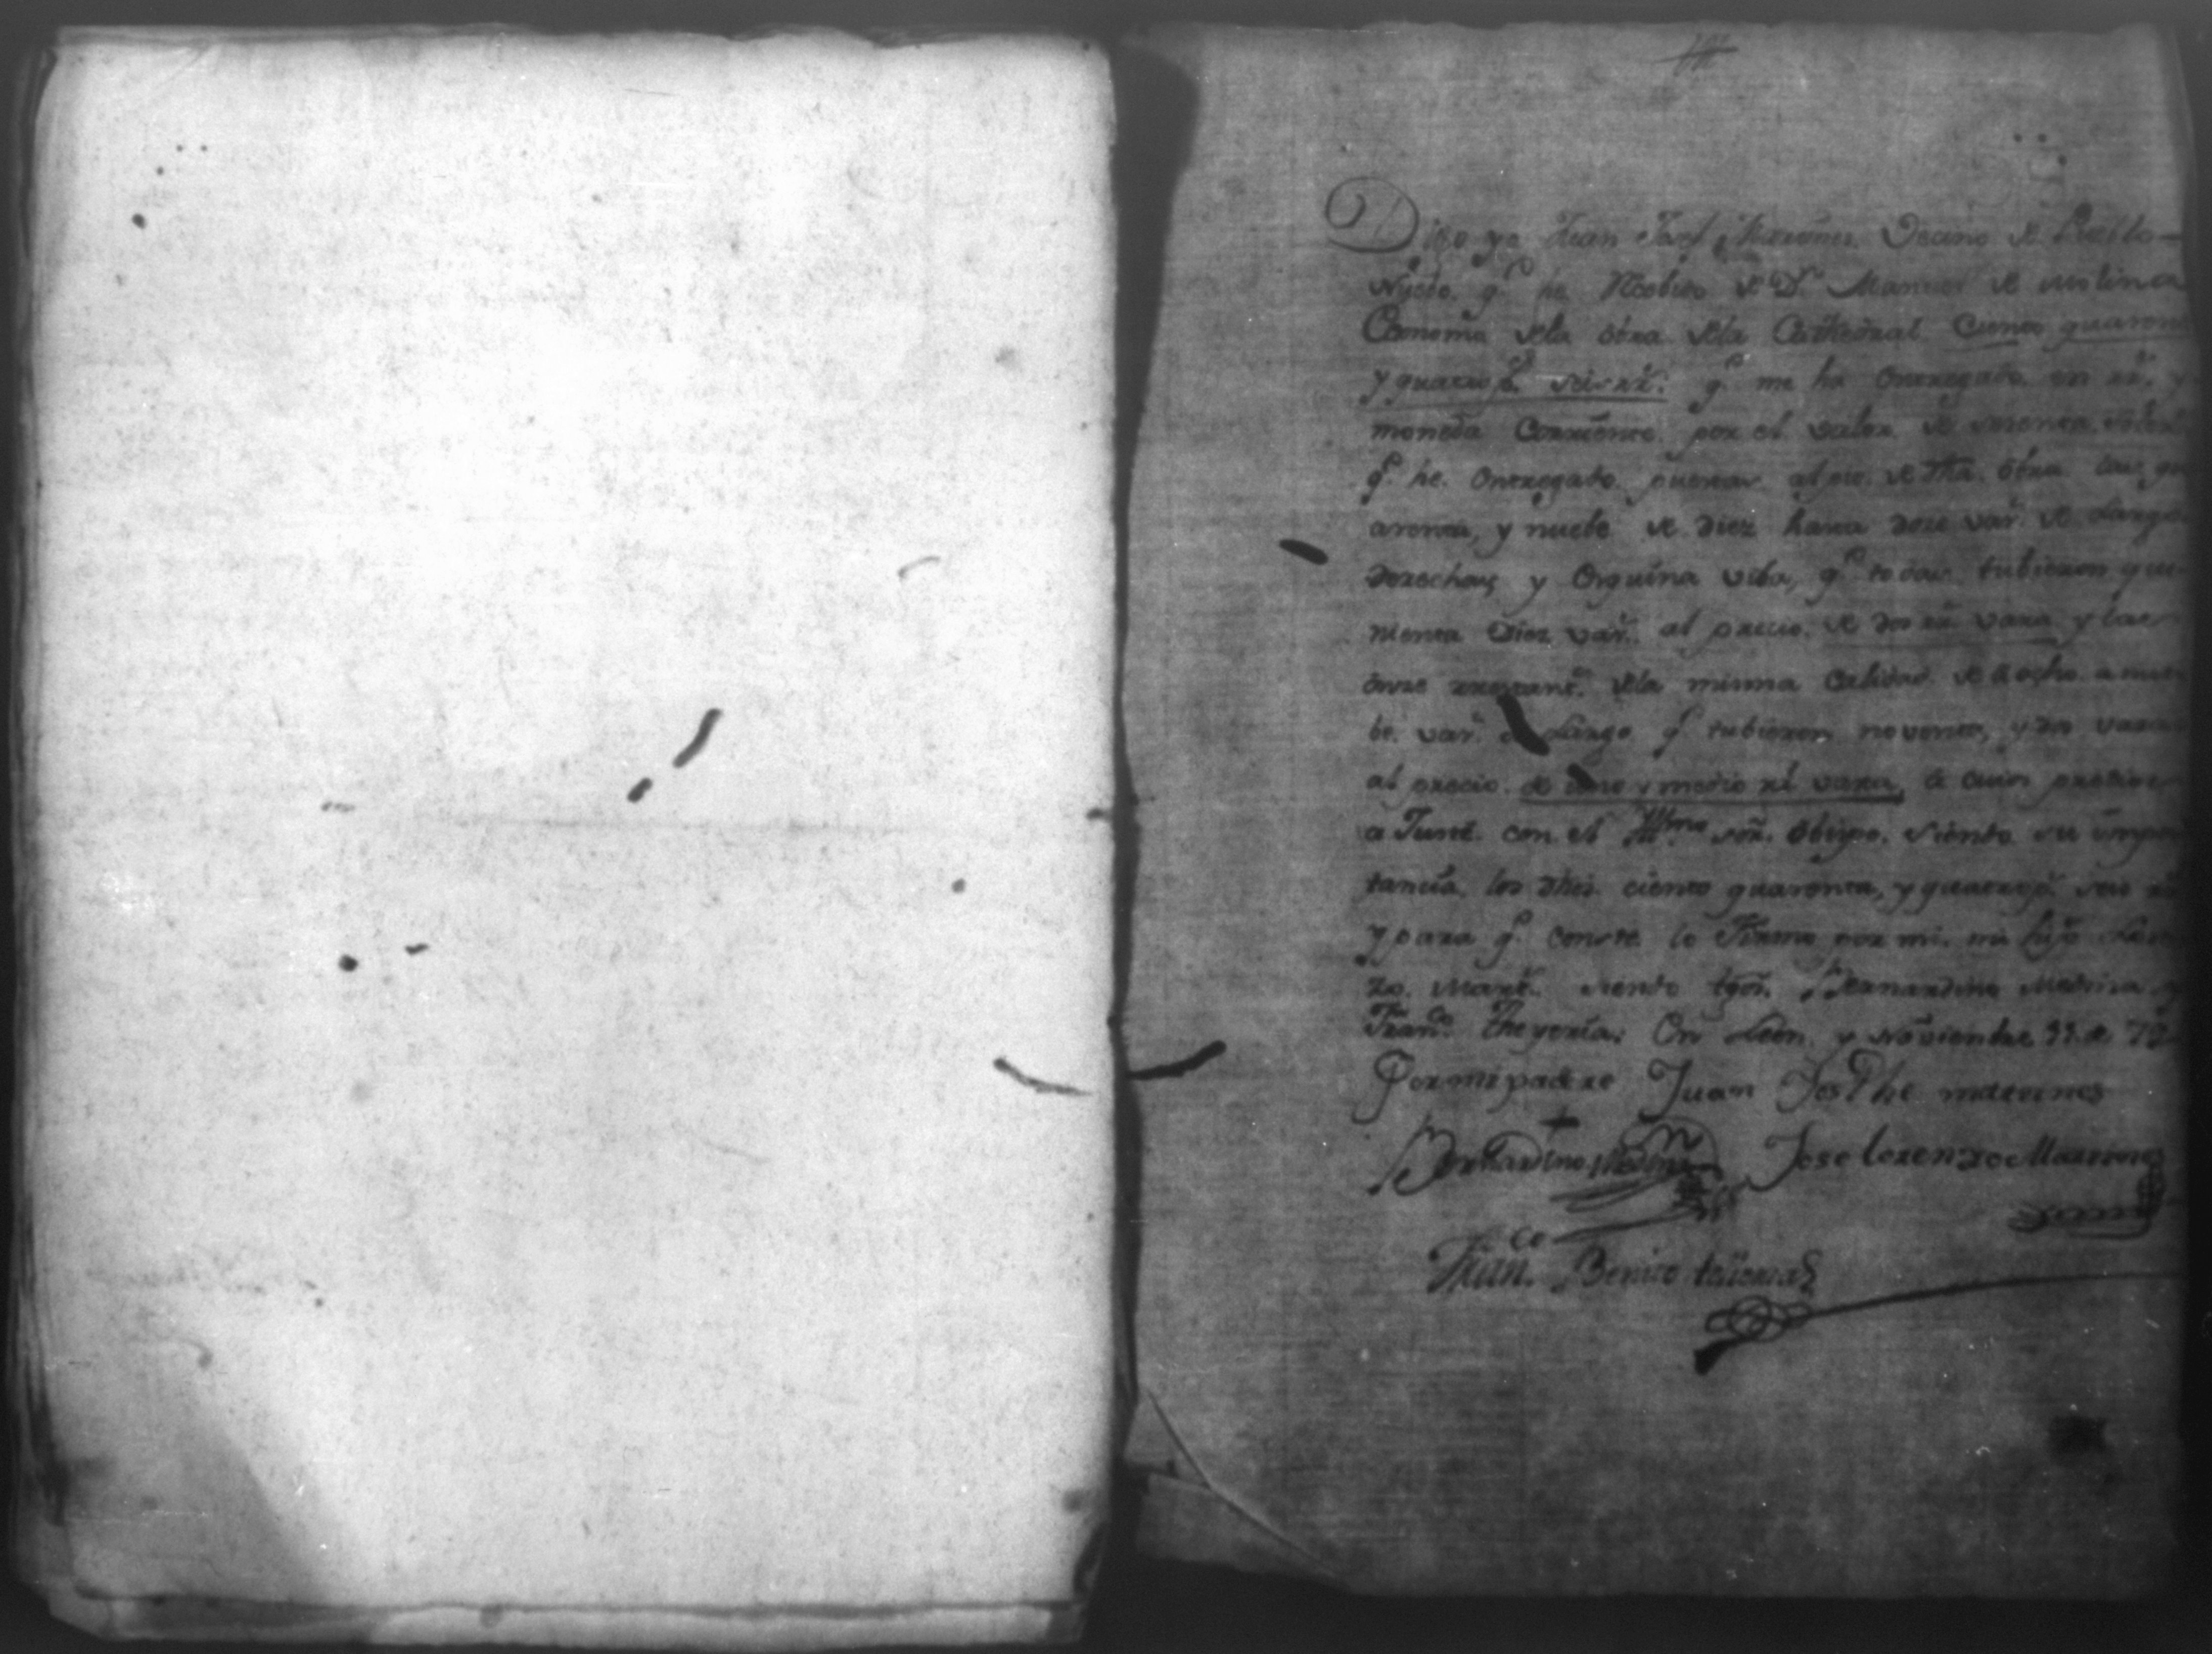 Digo yo Juan Josf Martines Vecino de Pueblo
Nuebo, q.e he Recibido de D.n Manuel de Molina
Ecónomo dela obra dela Cathedral Ciento quaren
y quatro p.s seis rr.s q.e me ha entregado en rr.s y
moneda Corriente por el valor de sesenta
q.e he entregado puestas al pie de dha. obra las qu
arenta, y nuebe de Diez hasta doze var.s de largo
derechas, y Esquina viba, q.e todas tubieron qui
nientas Diez var.s al precio de dos rr.s vara y las
onze restant.s dela misma calidad de â ocho a nue
be var.s de Largo q.e tubieron noventa, y dos varas
al precio de uno y medio rl. vara, â cuios precios
a Justé con el Ill.mo Sr. Obispo. siendo su impor
tancia los dhos. ciento quarenta, y quatro p.s seis rr.s
y para q.e conste lo Firmo por mi, mi hijo Loren
zo Mart.s siendo tgos. Bernardino Medina y
Fran.co Theyeria: En Leon y Noviembre 11. de 72
Por mi padre Juan Josphe martines
Bernardino Medina Jose Lorenzo Martines
Fran.co Benito